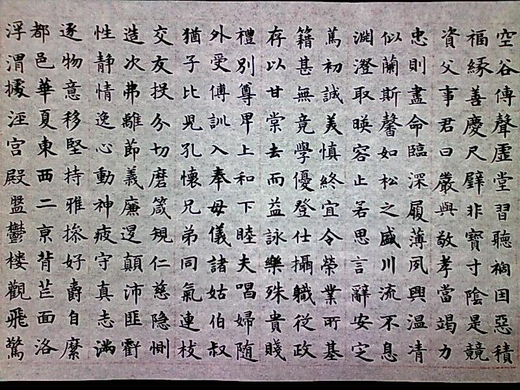 空谷傳聲虛堂習聽禍因惡積
福緣善慶尺璧非寶寸陰是競
資父事君曰嚴與敬孝當竭力
忠則盡命臨深履薄夙興溫凊
似蘭斯馨如松之盛川流不息
淵澄取暎容止若思言辭安定
篤初誠美慎終宜令榮業所基
籍甚無竟學優登仕攝職從政
存以甘棠去而益詠樂殊貴賤
禮別尊卑上和下睦夫唱婦隨
外受傅訓入奉母儀諸姑伯叔
猶子比兒孔懷兄弟同氣連枝
交友投分切磨箴規仁慈隱惻
造次弗離節義廉退顛沛匪虧
性靜情逸心動神疲守真志滿
逐物意移堅持雅操好爵自縻
都邑華夏東西二京背芒面洛
浮渭據涇宮殿盤鬱樓觀飛驚